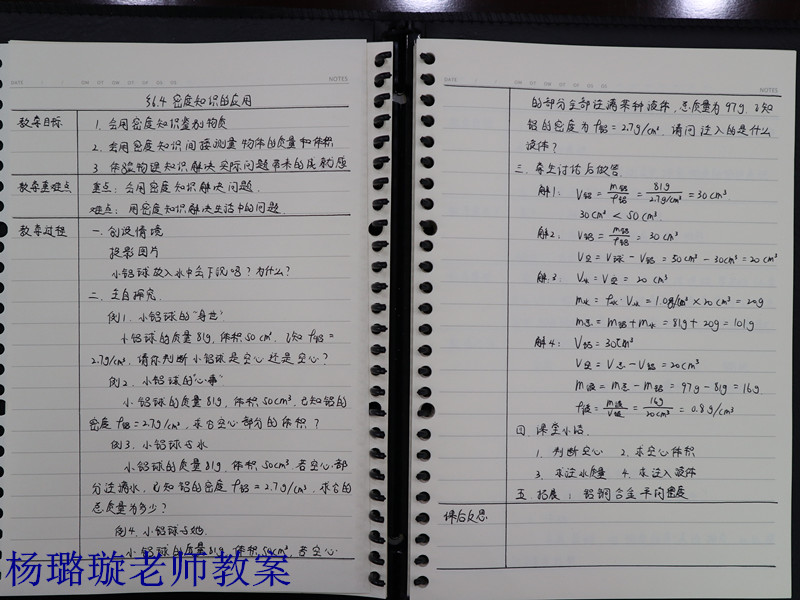 DATE
NOTES
§6.4 密度知识的应用
教学目标
1. 会用密度知识鉴别物质
2. 会用密度知识间接测量物体的质量和体积
3. 体验物理知识解决实际问题带来的成就感
教学重难点
重点：会用密度知识解决问题.
难点：用密度知识解决生活中的问题.
教学过程
一. 创设情境
投影图片
小铝球放入水中会下沉吗？为什么？
二. 自主探究
例1. 小铝球的“身世”
小铝球的质量81g, 体积50cm³, 已知ρ铝=
2.7g/cm³, 请你判断小铝球是空心还是空心？
例2. 小铝球的“心事”
小铝球的质量81g, 体积50cm³, 已知铝的
密度ρ铝=2.7g/cm³, 求它空心部分的体积？
例3. 小铝球与水
小铝球的质量81g, 体积50cm³, 若空心部
分注满水, 已知铝的密度ρ铝=2.7g/cm³, 求它的
总质量为多少？
例4. 小铝球与她.
小铝球的质量81g, 体积50cm³, 若空心
DATE
NOTES
的部分全部注满某种液体, 总质量为97g, 已知
铝的密度为ρ铝=2.7g/cm³, 请问注入的是什么
液体？
三. 学生讨论后做答.
解1: V铝=m铝/ρ铝=81g/2.7g/cm³=30cm³
30cm³<50cm³.
解2: V铝=m铝/ρ铝=30cm³
V空=V球-V铝=50cm³-30cm³=20cm³
解3: V水=V空=20cm³
m水=ρ水·V水=1.0g/cm³×20cm³=20g
m总=m铝+m水=81g+20g=101g
解4: V铝=30cm³
V空=V总-V铝=20cm³
m液=m总-m铝=97g-81g=16g
ρ液=m液/V液=16g/20cm³=0.8g/cm³
四. 课堂小结
1. 判断空心 2. 求空心体积
3. 求注水质量 4. 求注入液体
五. 拓展：铝铜合金平均密度
课后反思
杨璐璇老师教案